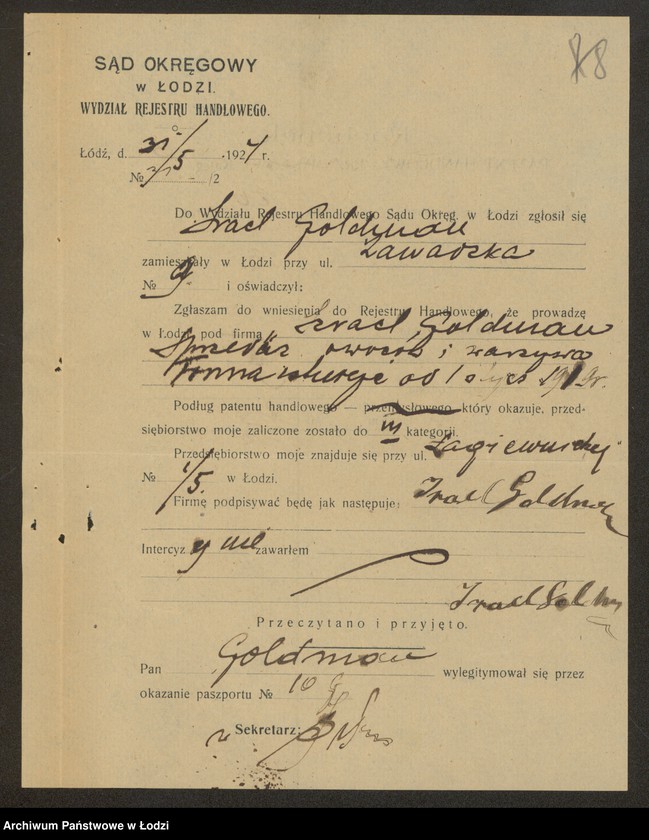 88
SĄD OKRĘGOWY
w ŁODZI.
WYDZIAŁ REJESTRU HANDLOWEGO.
Łódź, d. 31/5 1924 r.
№ /2
Do Wydziału Rejestru Handlowego Sądu Okręg. w Łodzi zgłosił się
Izrael Goldman
zamieszkały w Łodzi przy ul. Zawadzka
№ 9 i oświadczył:
Zgłaszam do wniesienia do Rejestru Handlowego, że prowadzę
w Łodzi pod firmą Izrael Goldman
Sprzedaż owoców i warzywa
Firma istnieje od 1 1919 r.
Podług patentu handlowego — przemysłowego, który okazuje, przed-
siębiorstwo moje zaliczone zostało do III kategorji.
Przedsiębiorstwo moje znajduje się przy ul. Łagiewnickiej
№ 1/5. w Łodzi.
Firmę podpisywać będę jak następuje: Izrael Goldman
Intercyzy nie zawarłem
Izrael Goldman
Przeczytano i przyjęto.
Pan Goldman wylegitymował się przez
okazanie paszportu № 10
Sekretarz:
Archiwum Państwowe w Łodzi